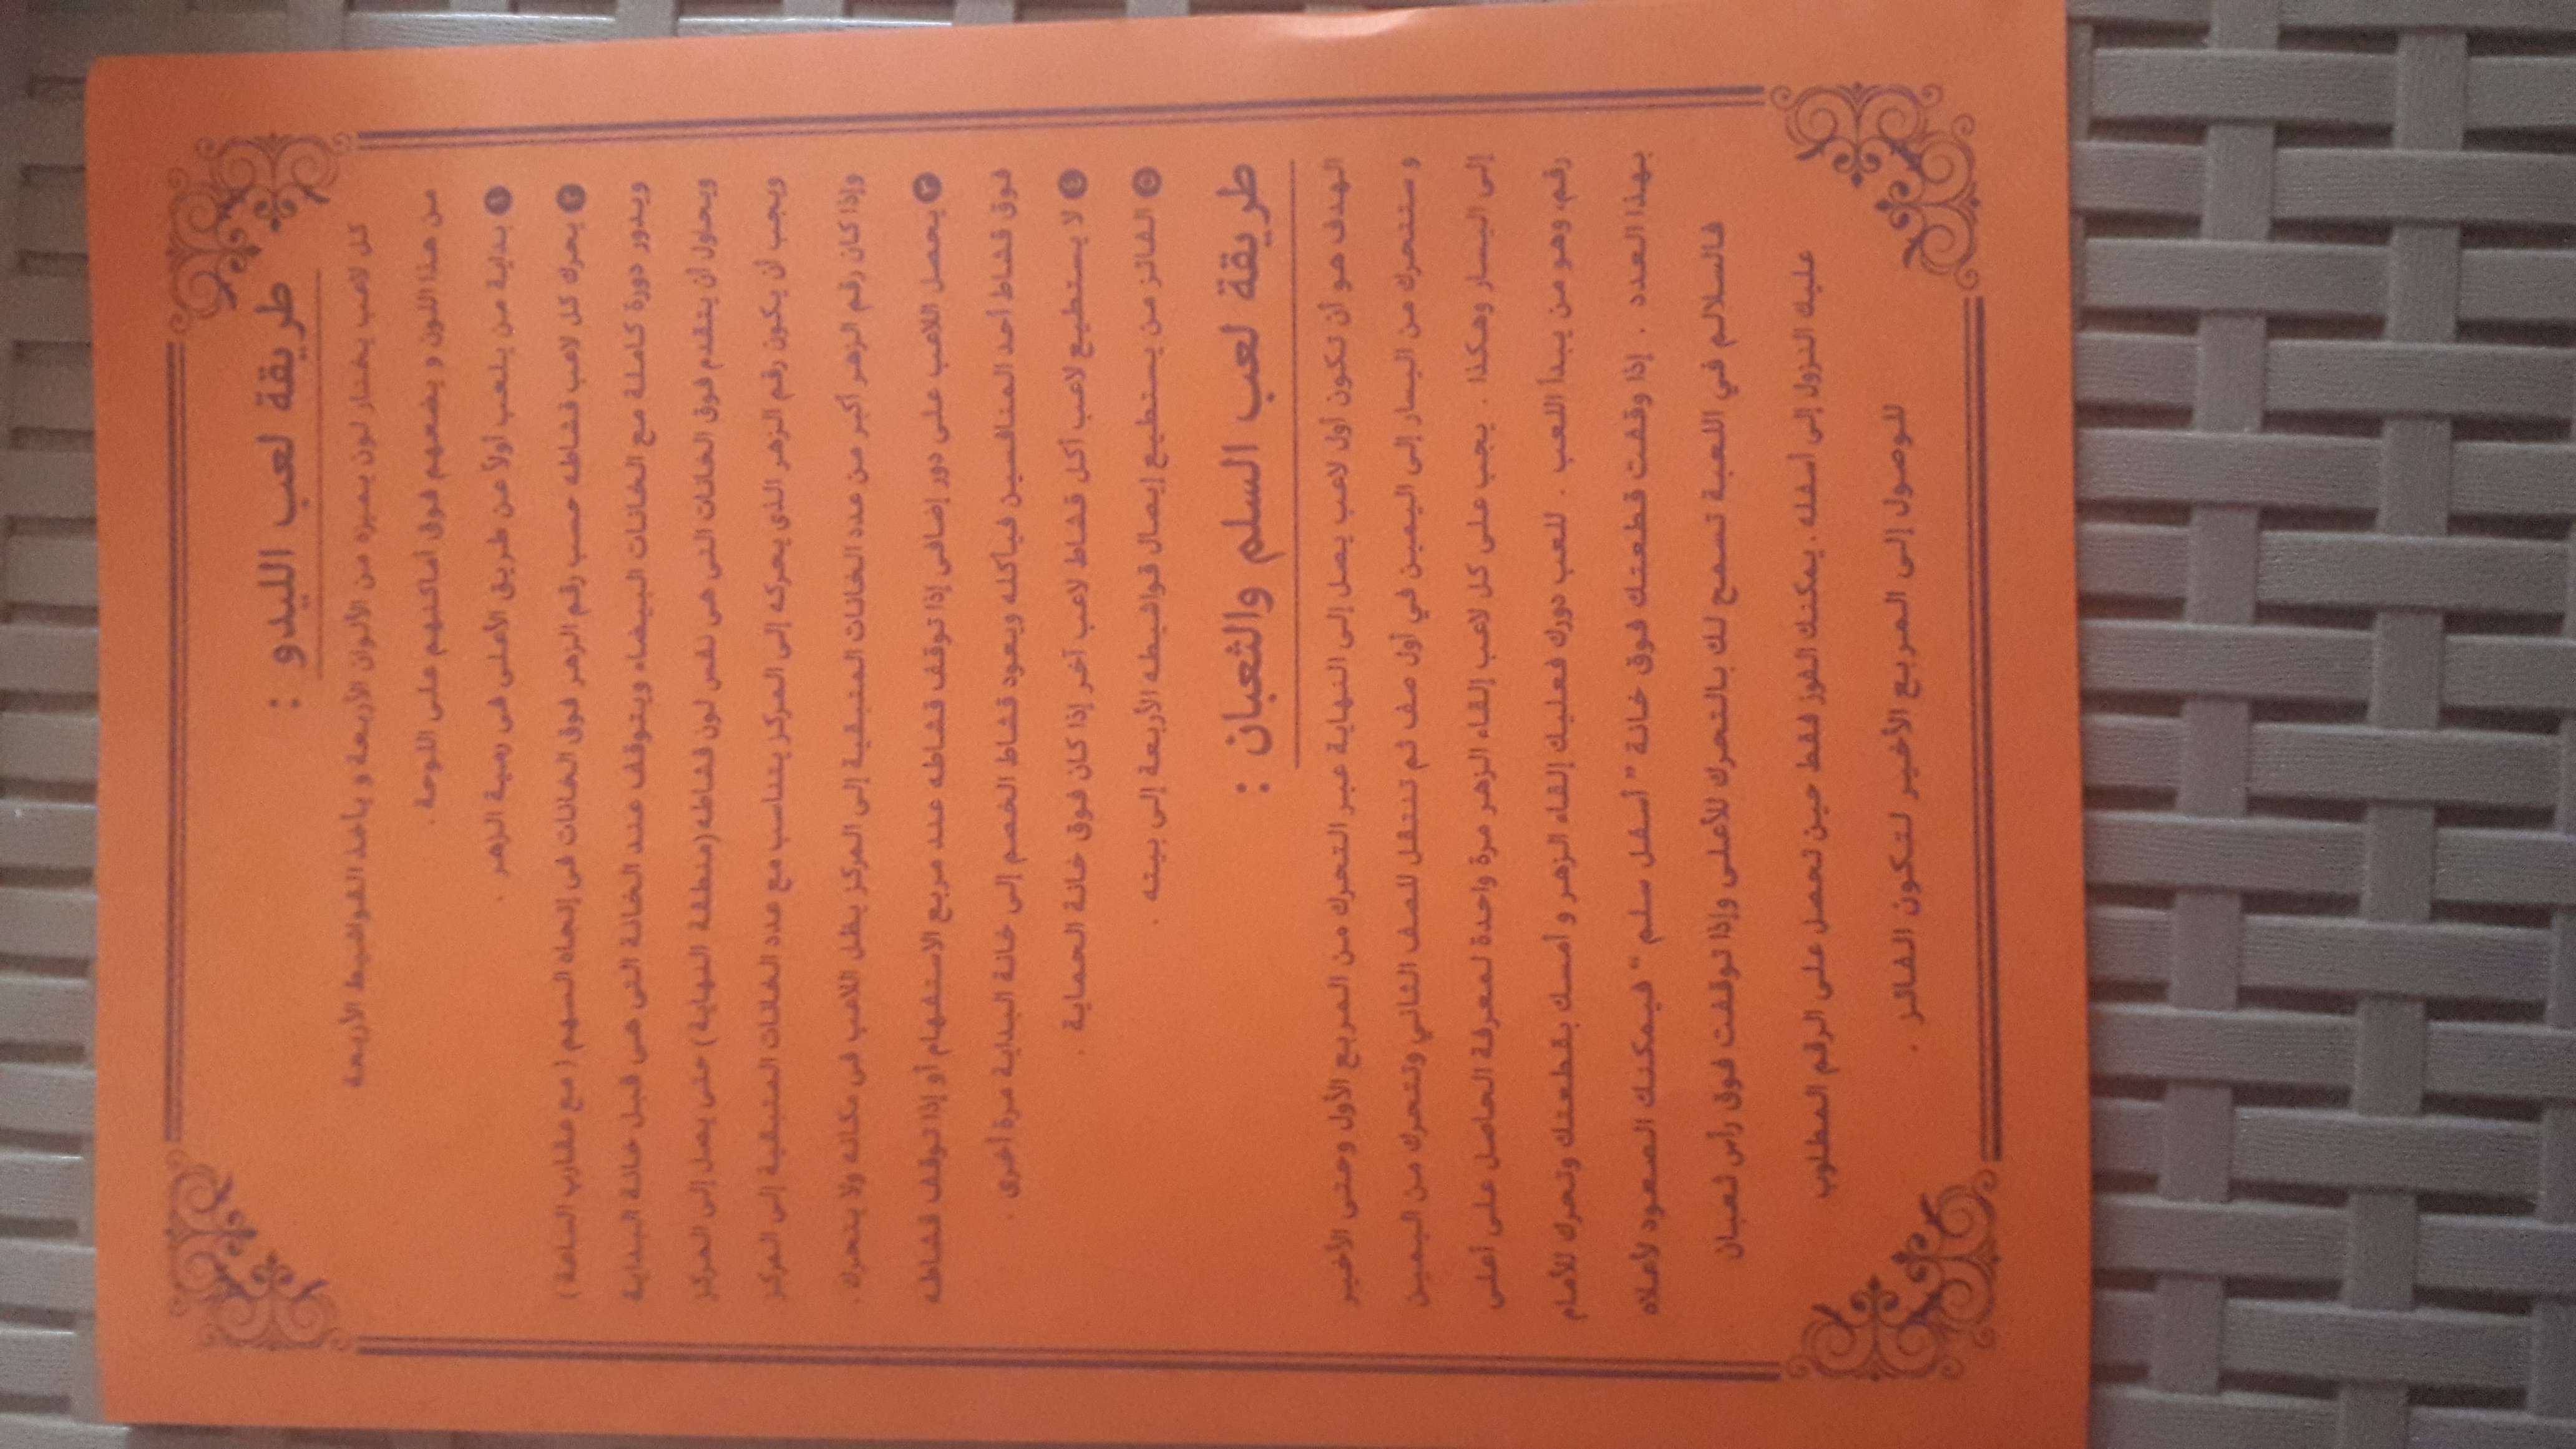 طريقة لعب الليدو :
كل لاعب يختار لون يميزه من الألوان الأربعة و يأخذ القواشيط الأربعة
من هذا اللون و يضعهم فوق أماكنهم على اللوحة .
١ بداية من يلعب أولاً عن طريق الأعلى فى رمية الزهر .
٢ يحرك كل لاعب قشاطه حسب رقم الزهر فوق الخانات فى إتجاه السهم ( مع عقارب الساعة )
ويدور دورة كاملة مع الخانات البيضاء ويتوقف عند الخانة التى هى قبل خانة البداية
ويحاول أن يتقدم فوق الخانات التى هى نفس لون قشاطه (منطقة النهاية ) حتى يصل إلى المركز
ويجب أن يكون رقم الزهر الذى يحركه إلى المركز يتناسب مع عدد الخانات المتبقية إلى المركز
وإذا كان رقم الزهر أكبر من عدد الخانات المتبقية إلى المركز يظل اللاعب فى مكانه ولا يتحرك .
٣ يحصل اللاعب على دور إضافى إذا توقف قشاطه عند مربع الاستفهام أو إذا توقف قشاطه
فوق قشاط أحد المنافسين فيأكله ويعود قشاط الخصم إلى خانة البداية مرة أخرى .
٤ لا يستطيع لاعب أكل قشاط لاعب آخر إذا كان فوق خانة الحماية .
٥ الفائز من يستطيع إيصال قواشيطه الأربعة إلى بيته .
طريقة لعب السلم والثعبان :
الهدف هو أن تكون أول لاعب يصل إلى النهاية عبر التحرك من المربع الأول وحتى الأخير
و ستتحرك من اليسار إلى اليمين في أول صف ثم تنتقل للصف الثاني وتتحرك من اليمين
إلى اليسار وهكذا . يجب على كل لاعب إلقاء الزهر مرة واحدة لمعرفة الحاصل على أعلى
رقم، وهو من يبدأ اللعب . للعب دورك فعليك إلقاء الزهر و أمسك بقطعتك وتحرك للأمام
بهذا العدد . إذا وقفت قطعتك فوق خانة " أسفل سلم " فيمكنك الصعود لأعلاه
فالسلالم في اللعبة تسمح لك بالتحرك للأعلى وإذا توقفت فوق رأس ثعبان
عليك النزول إلى أسفله. يمكنك الفوز فقط حين تحصل على الرقم المطلوب
للوصول إلى المربع الأخير لتكون الفائز .